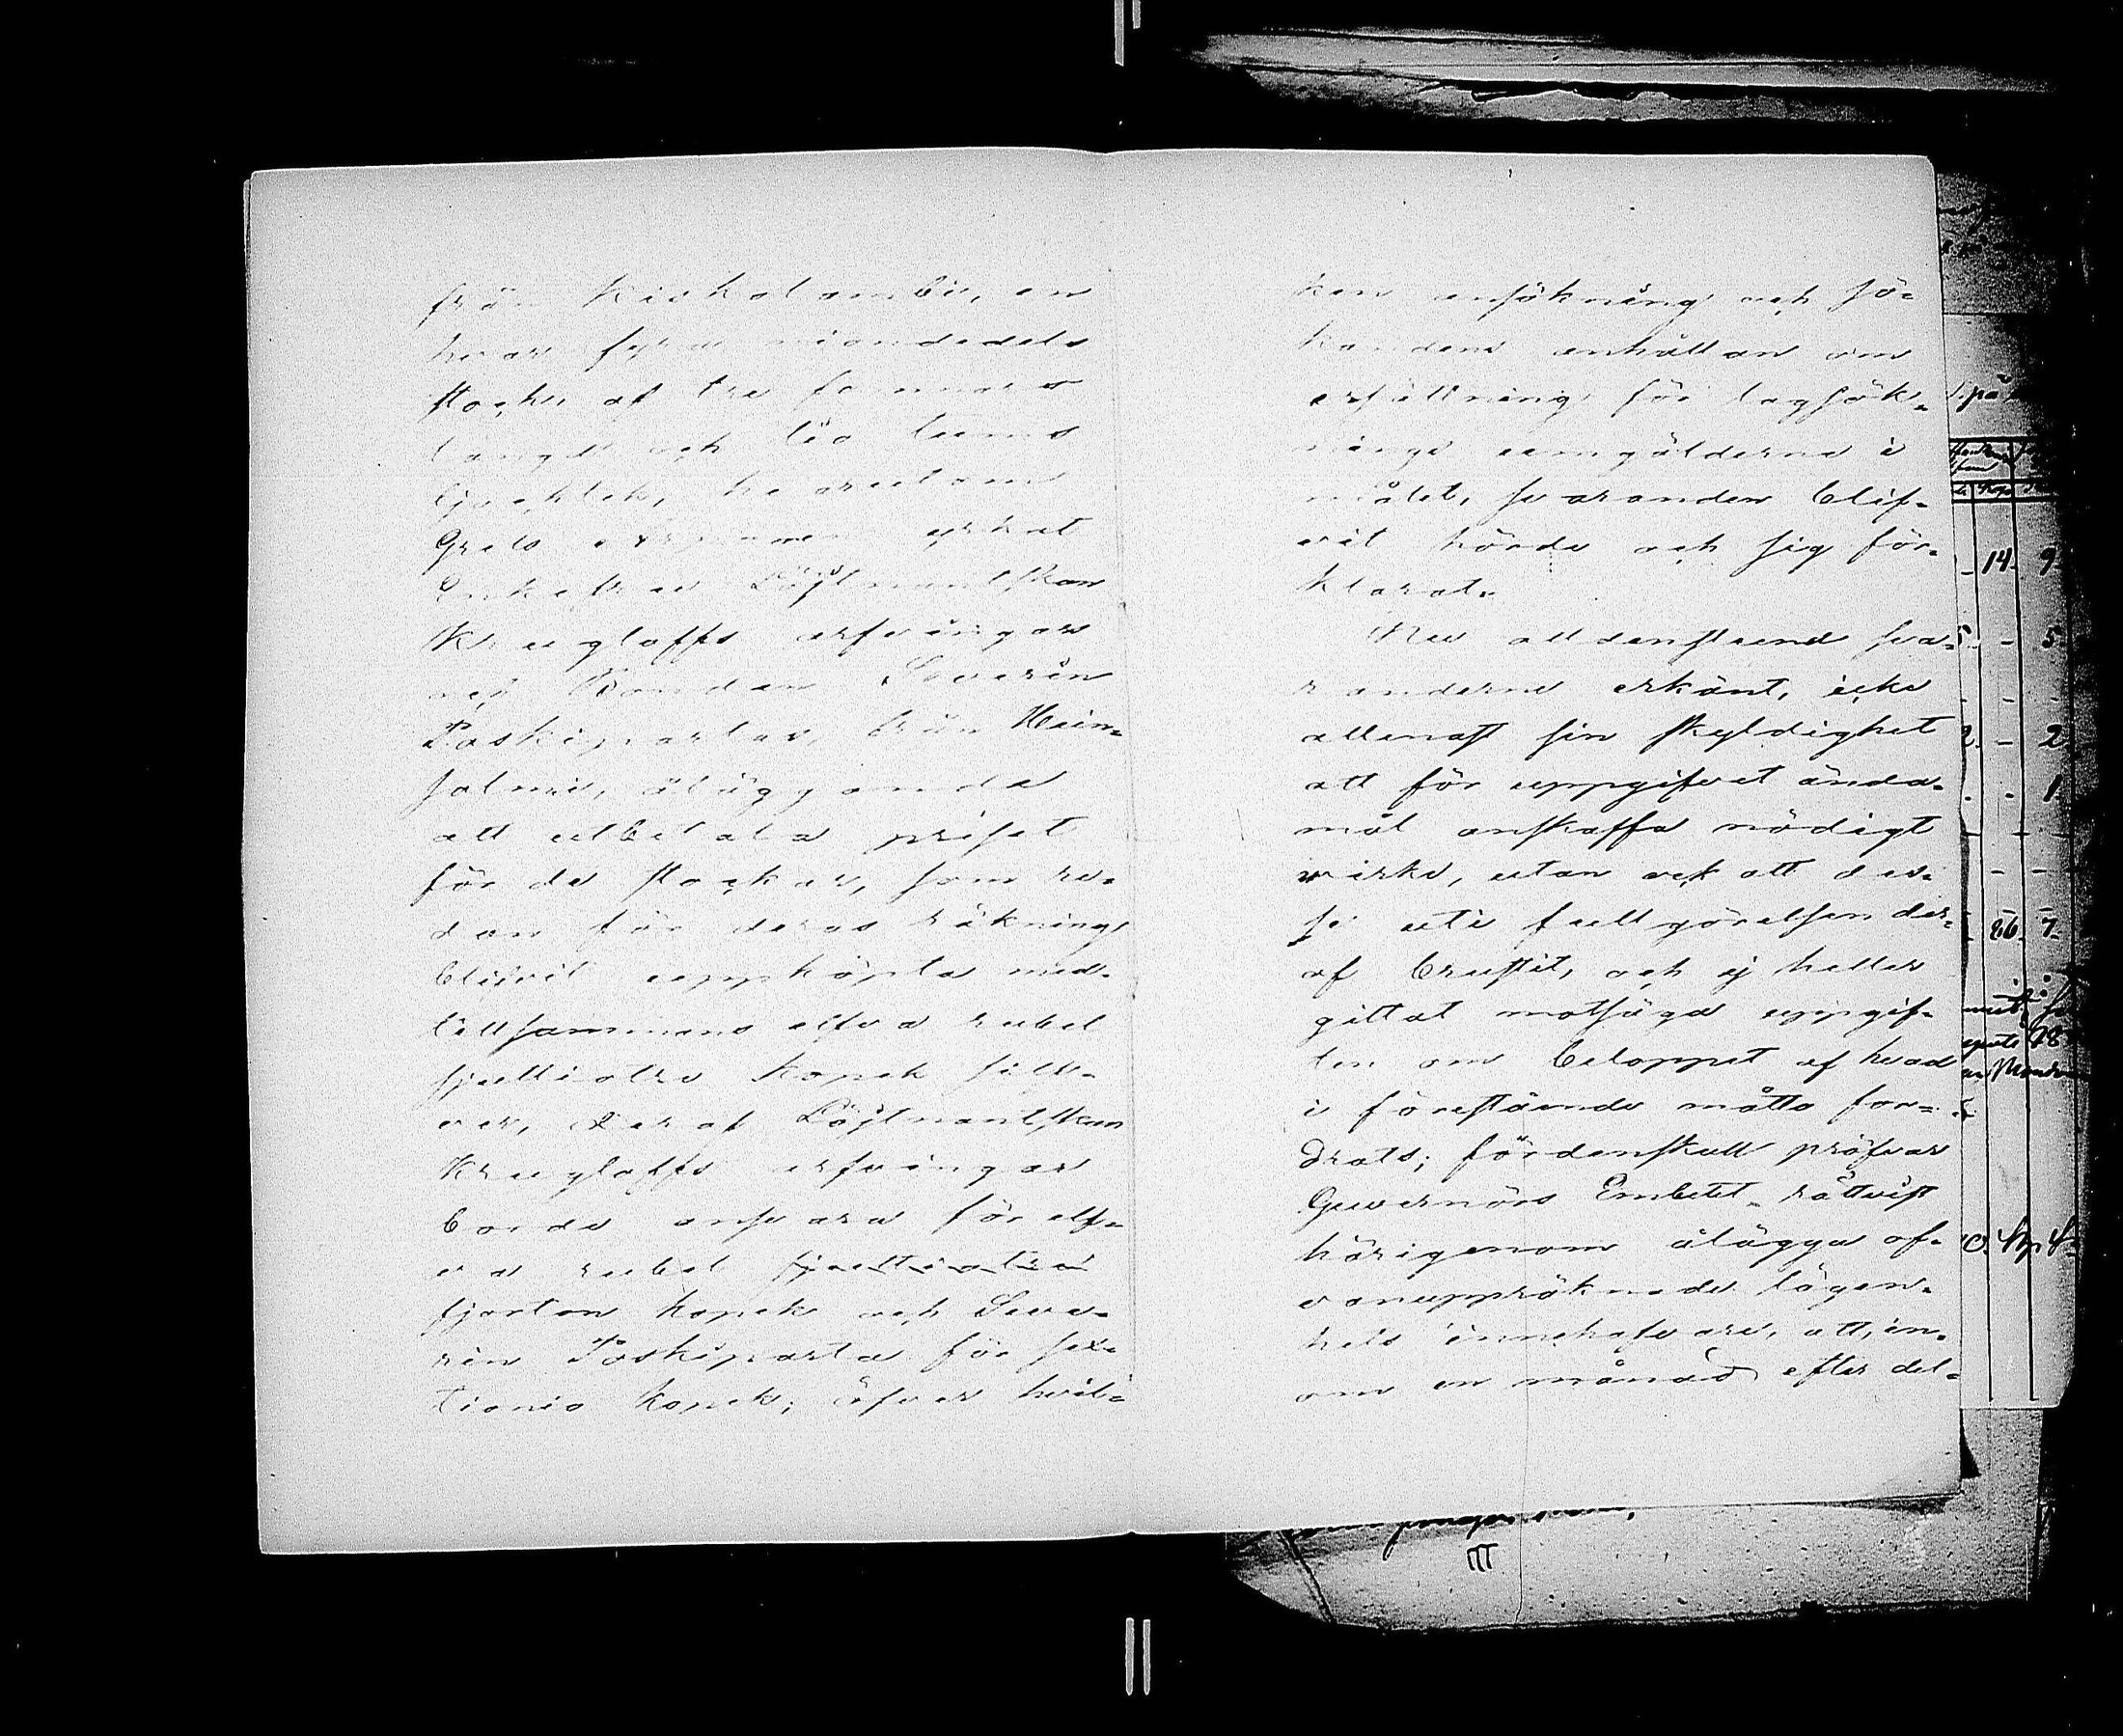 från Kiskolambi, en
hvar fyra niondedels
stock af tre famnars
längd och tio tums
tjocklek, hvarutom
Grels yrkat
Enkefru Löjtnantskan
Krugloffs arfvingar
och Bonden Severin
Paskiparta, från Hein-
jolmi, åläggande
att utbetala priset
för de stockar, som re-
dan för deras räkning
blifvit uppköpta med
tillsammans elfva rubel
sjuttiotre kopek silf-
ver, deraf Löjtnantskan
Krugloffs arfvingar
borde ansvara för elf-
va rubel sjuttiotre
fjorton kopek och Seve-
rin Paskiparta för fem-
tionio kopek; öfver hvil-
ken ansökning och sö-
kandens anhållan om
ersättning för lagsök-
nings omgälderna i
målet, svaranden blif-
vit hörde och sig för-
klarat.
Nu alldenstund sva-
randerne erkänt, icke
allenast sin skyldighet
att för uppgifvet ända-
mål anskaffa nödigt
virke, utan ock att des-
se uti fullgörelsen der-
af brustit, och ej heller
gittat motsäga uppgif-
ten om beloppet af hvad
i förestående måtto for-
drats; fördenskull pröfvar
Guvernörs Embetet rättvist
härigenom ålägga of-
vanuppräknade lägen-
hets innehafvare, att, in-
om en månad efter del-